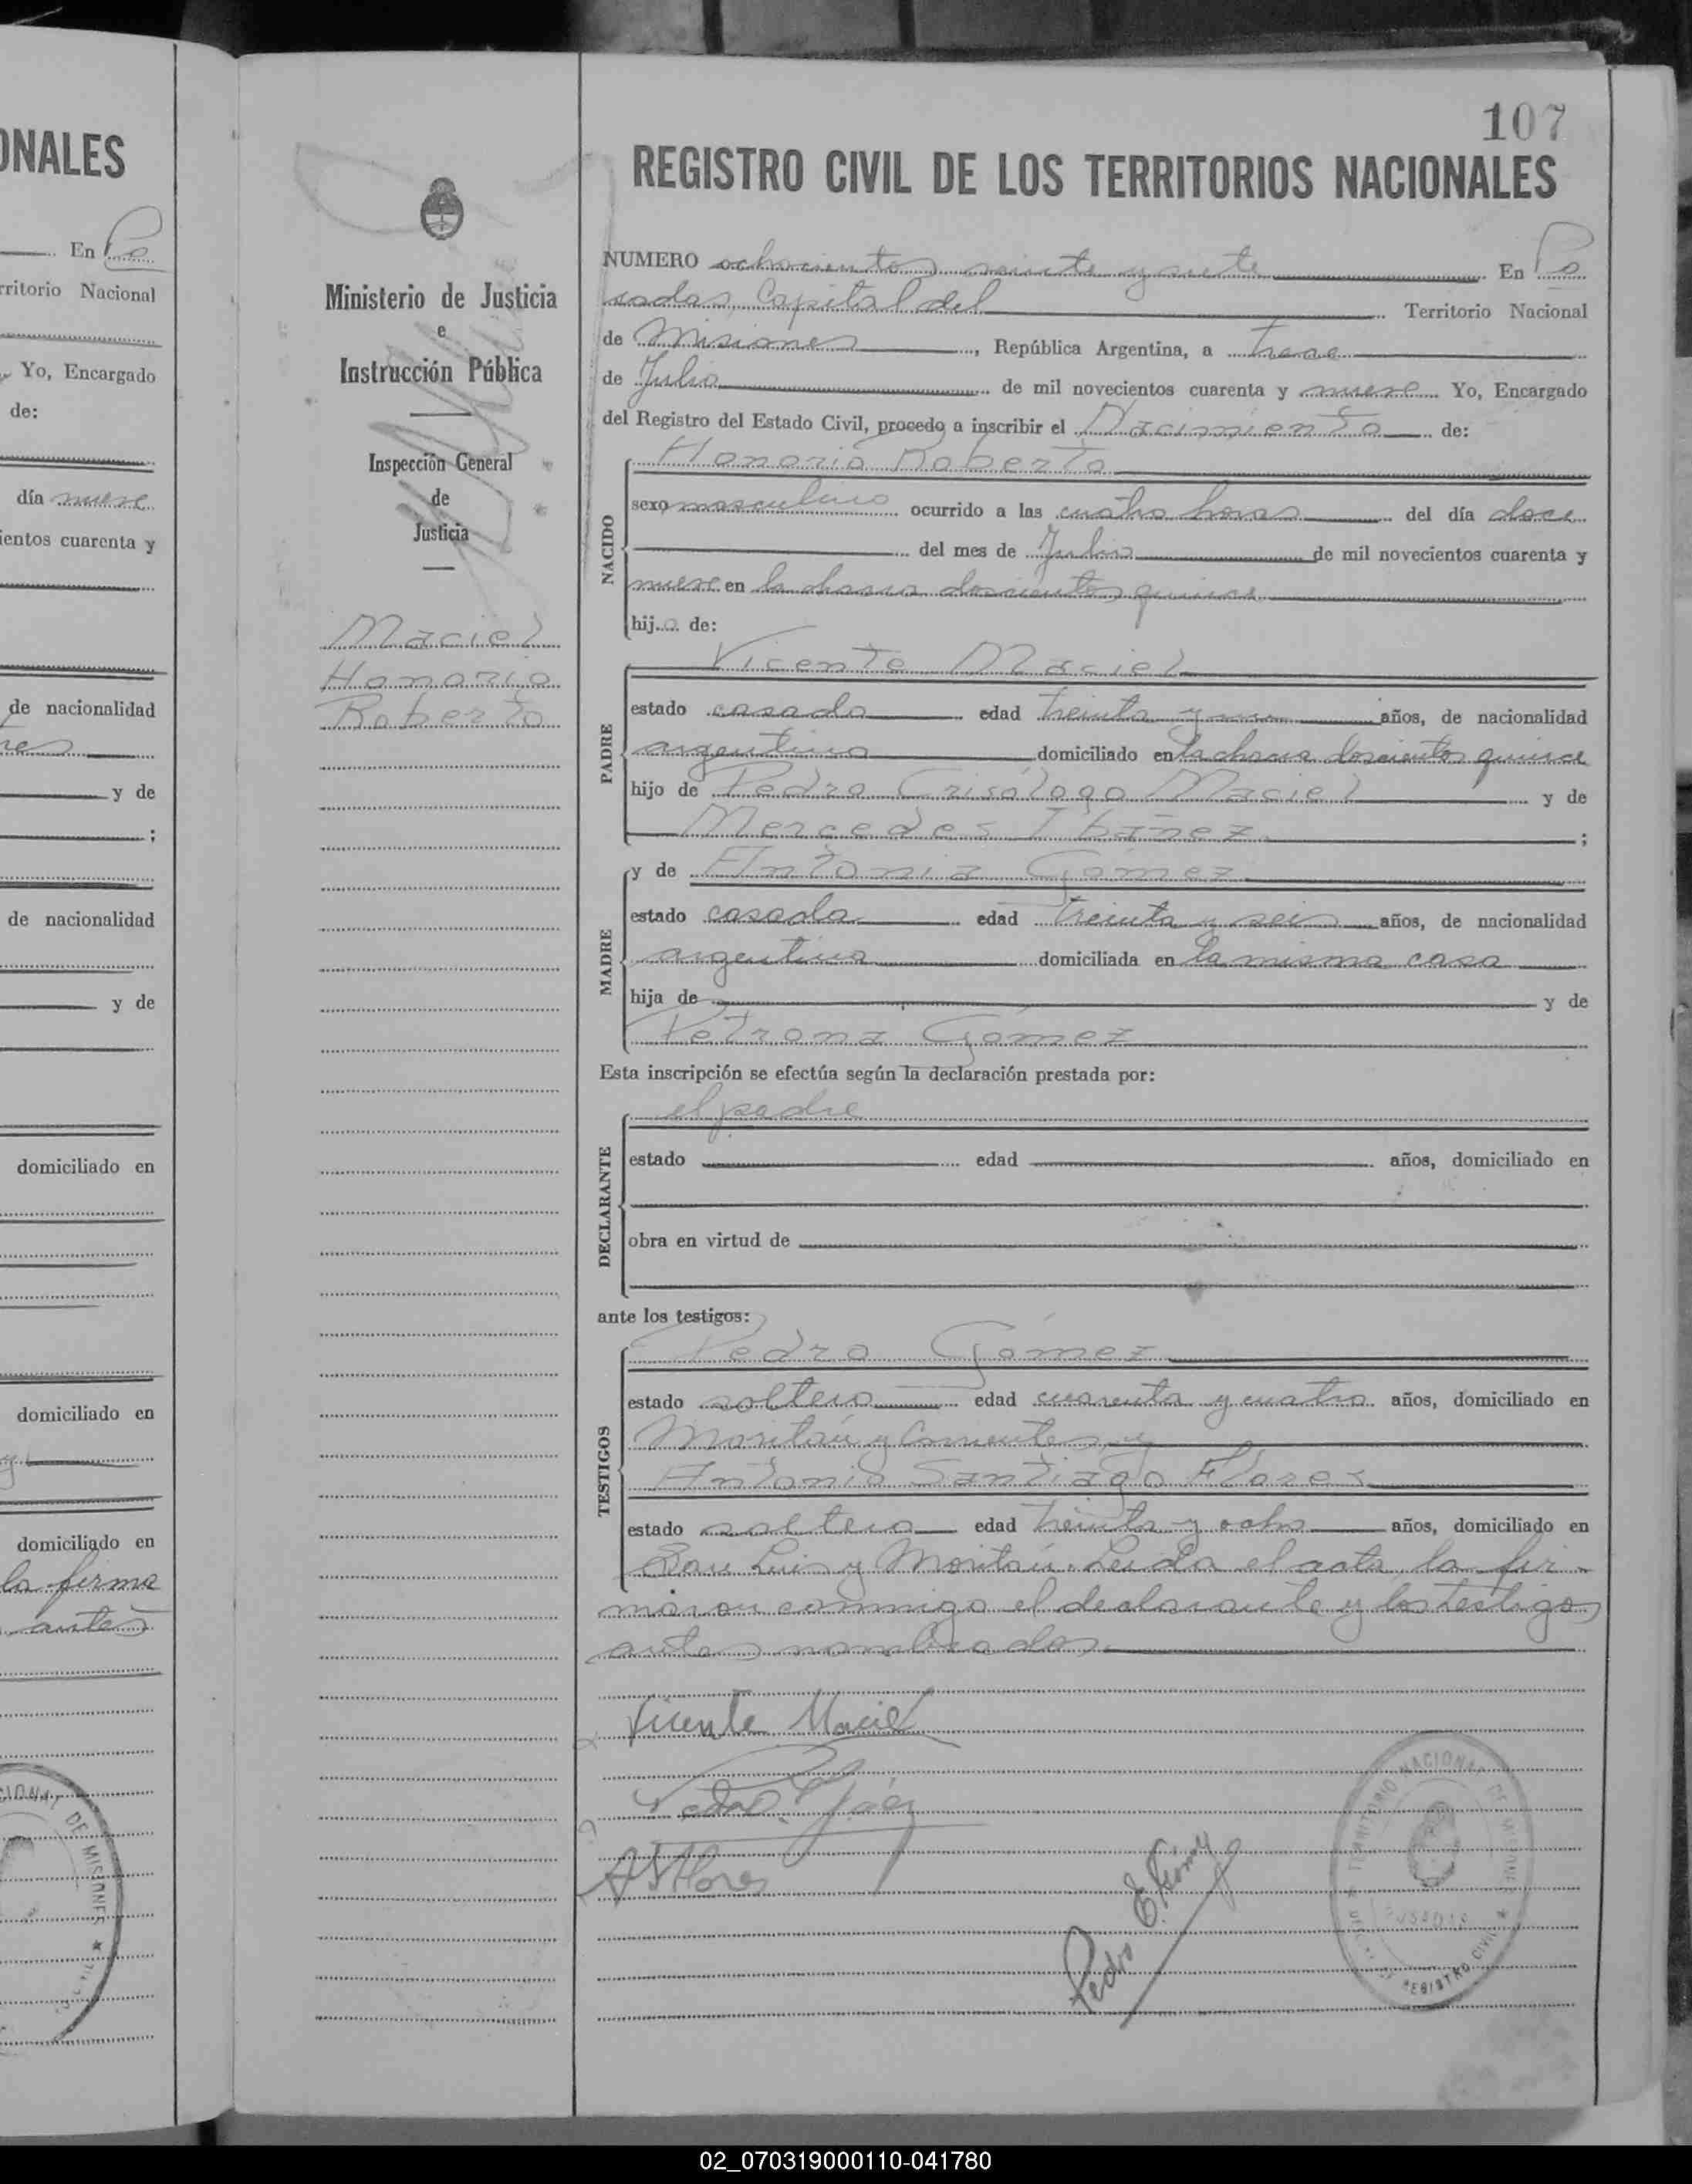 ONALES
En Po
rritorio Nacional
Yo, Encargado
de:
día nueve
ientos cuarenta y
de nacionalidad
res
y de
;
de nacionalidad
y de
domiciliado en
domiciliado en
y
domiciliado en
la firma
antes
Ministerio de Justicia
e
Instrucción Pública
Inspección General
de
Justicia
Maciel
Honorio
Roberto
107
REGISTRO CIVIL DE LOS TERRITORIOS NACIONALES
NUMERO ochocientos veinte y siete En Po
sadas Capital del Territorio Nacional
de Misiones, República Argentina, a trece
de Julio de mil novecientos cuarenta y nueve Yo, Encargado
del Registro del Estado Civil, procedo a inscribir el Nacimiento de:
Honorio Roberto
NACIDO
sexo masculino ocurrido a las cuatro horas del día doce
del mes de Julio de mil novecientos cuarenta y
nueve en la chacra doscientos quince
hijo de:
Vicente Maciel
PADRE
estado casado edad treinta y un años, de nacionalidad
argentino domiciliado en la chacra doscientos quince
hijo de Pedro Crisólogo Maciel y de
Mercedes Ibáñez ;
y de Antonia Gómez
MADRE
estado casada edad treinta y seis años, de nacionalidad
argentina domiciliada en la misma casa
hija de y de
Petrona Gómez
Esta inscripción se efectúa según la declaración prestada por:
el padre
DECLARANTE
estado edad años, domiciliado en
obra en virtud de
ante los testigos:
Pedro Gómez
TESTIGOS
estado soltero edad cuarenta y cuatro años, domiciliado en
Moritán y Corrientes y
Antonio Santiago Flores
estado soltero edad treinta y ocho años, domiciliado en
San Luis y Moritán. Leída el acta la fir-
maron conmigo el declarante y los testigos
antes nombrados.
Vicente Maciel
Pedro Gómez
ASFlores
Pedro E.
TERRITORIO NACIONAL DE MISIONES
POSADAS
REGISTRO CIVIL
02_070319000110-041780